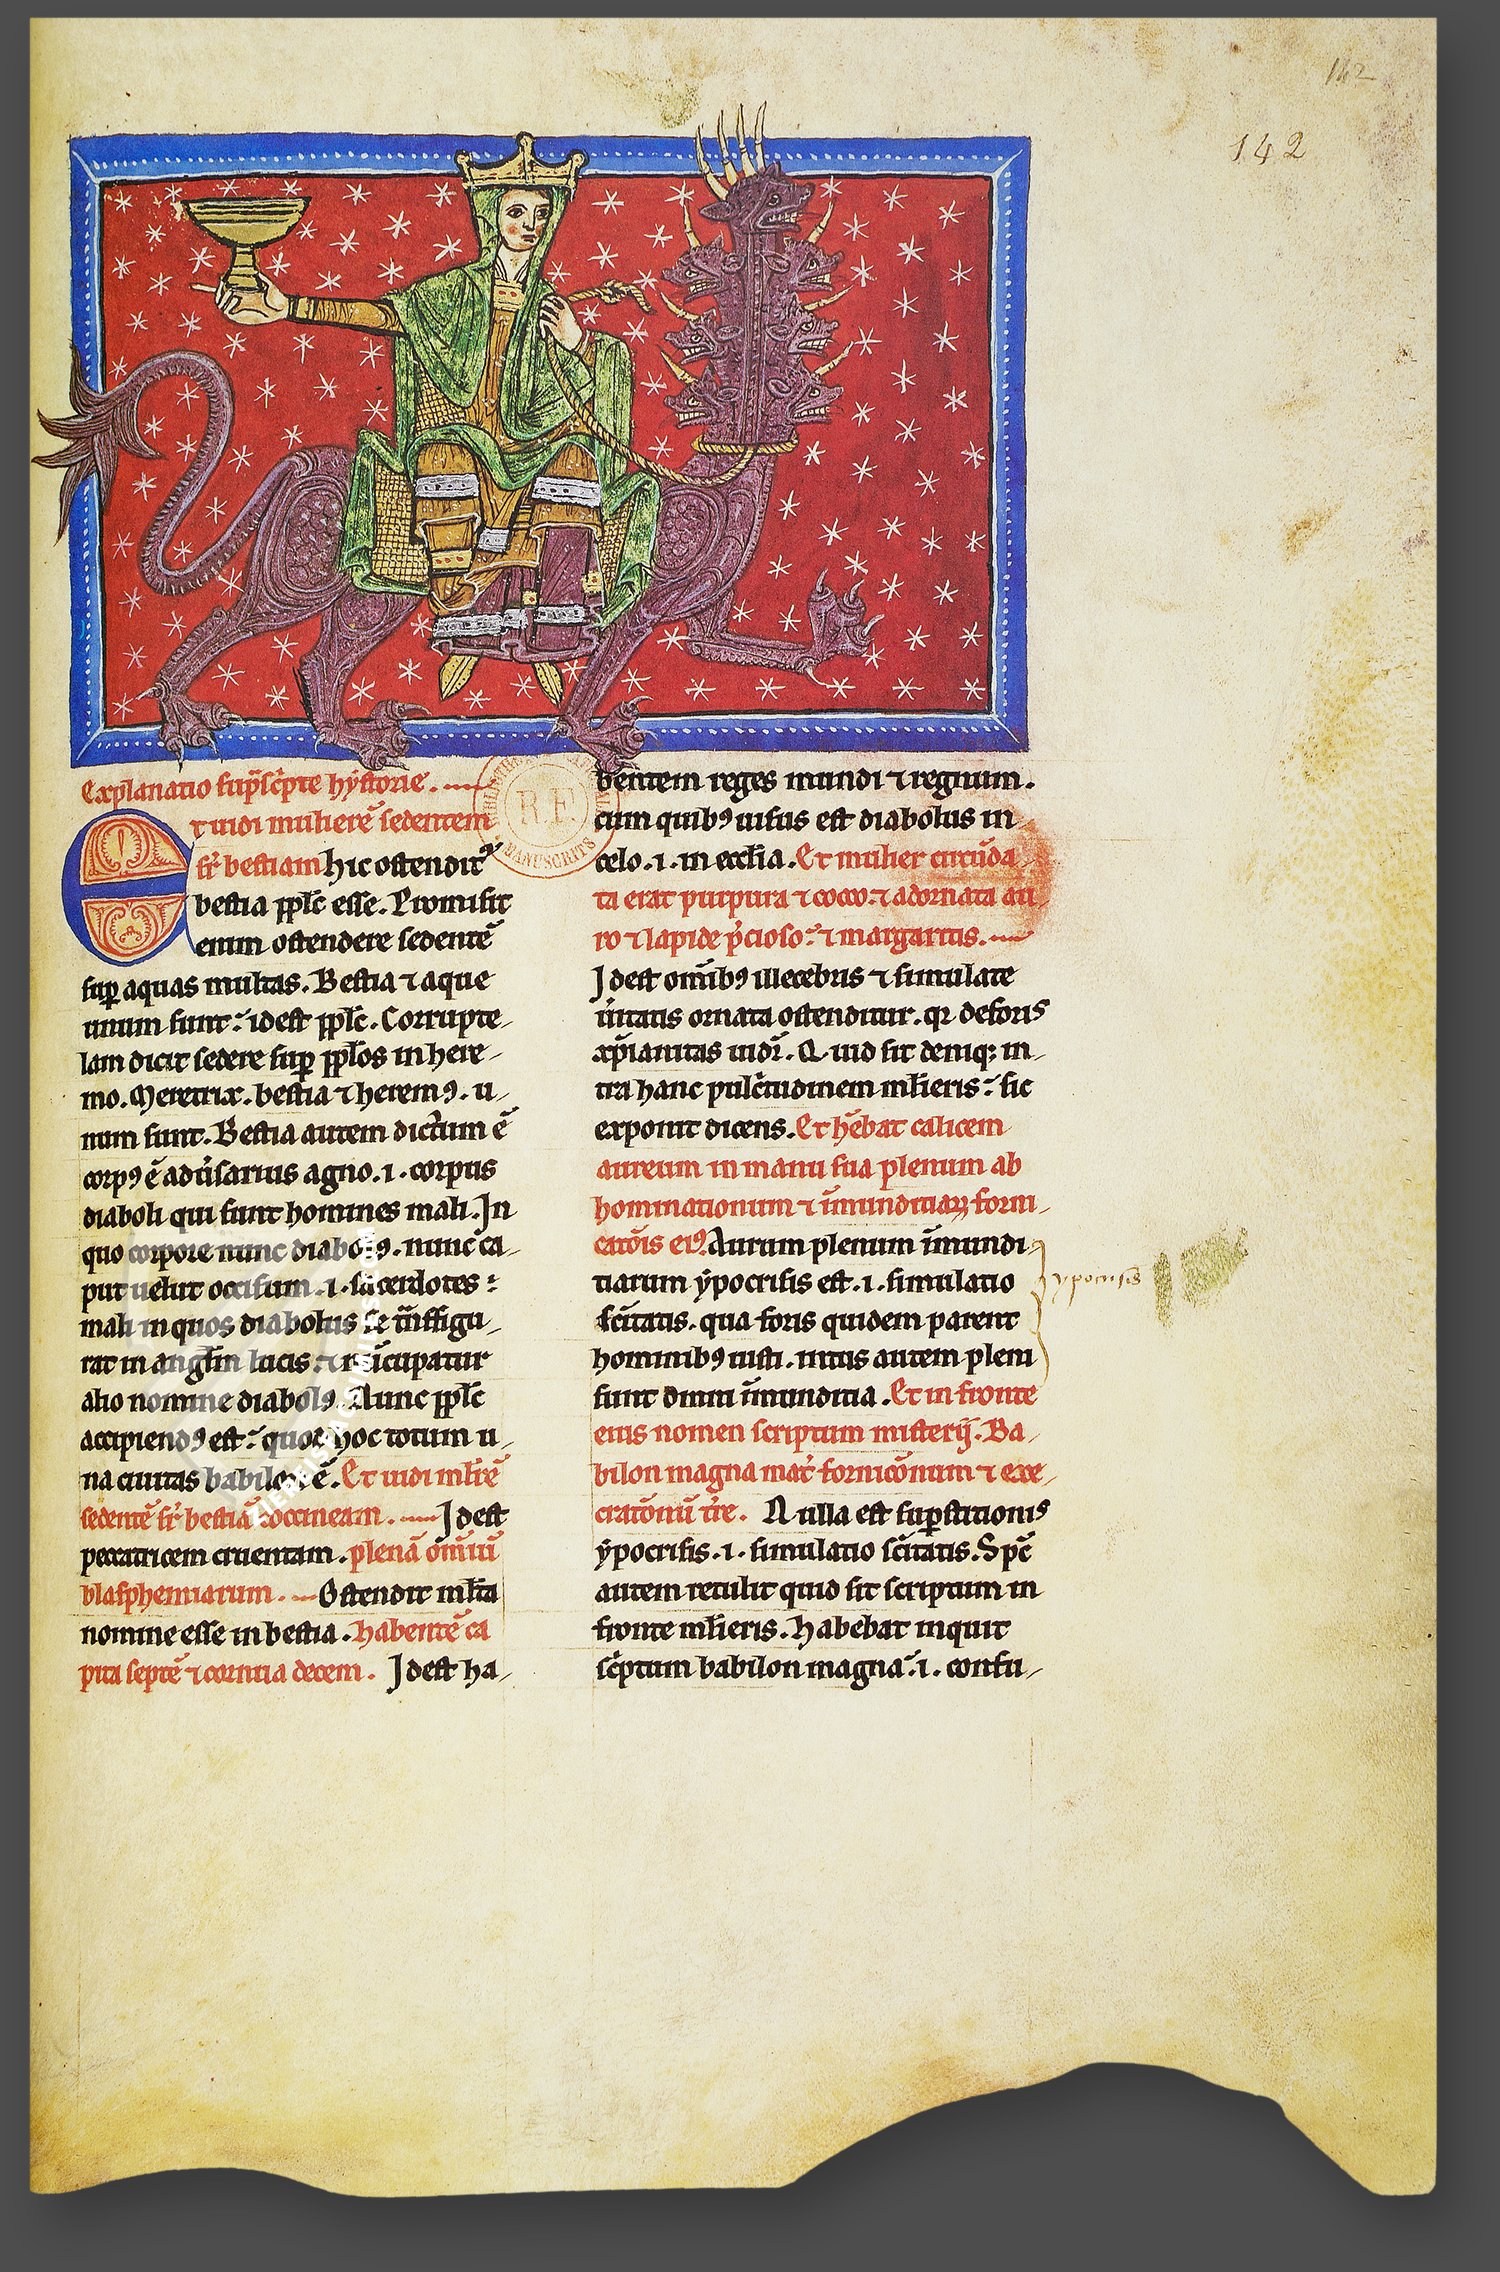 142
142
Explanatio sup̄sc̄pte hystorie.
Et uidi mulierē sedentem
sr̄ bestiam hic ostendit᷑
bestia ppl̄s esse. Promisit
enim ostendere sedentē
sup aquas multas. Bestia ⁊ aque
unum sunt: idest ppl̄s. Corrupte
lam dicit sedere sup ppl̄os in here
mo. Meretrix. bestia ⁊ heremꝰ. u
num sunt. Bestia autem dictum ē
corpꝰ ē adūsarius agno .i. corpus
diaboli qui sunt homines mali. In
quo corpore nunc diabolꝰ. nunc ca
put uelut occisum .i. sacerdotes
mali in quos diabolus se tr̄nsfigu
rat in angl̄m lucis
alio nomine diabolꝰ. Nunc ppl̄s
accipiendꝰ est: quod hoc totum u
na ciuitas babilon ē. Et uidi ml̄rē
sedentē sr̄ bestiā coccineam. Idest
peccatricem cruentam. plenā om̄iū
blasphemiarum. Ostendit ml̄ta
nomine esse in bestia. habentē ca
pita septē ⁊ cornua decem. Idest ha
bentem reges mundi ⁊ regnum.
cum quibꝰ uisus est diabolus in
celo .i. in eccl̄ia. Et mulier circūda
ta erat purpura ⁊ cocco: ⁊ adornata au
ro ⁊ lapide p̄cioso: ⁊ margaritis.
Idest om̄ibꝰ illecebris ⁊ simulate
ūitatis ornata ostenditur. qr deforis
xp̄ianitas uidr̄. Quid sit deniq; in
tra hanc pulc̄tudinem ml̄ieris: sic
exponit dicens. Et hēbat calicem
aureum in manu sua plenum ab
hominationum ⁊ īmunditiaꝝ forni
catōis eiꝰ. Aurum plenum īmundi
tiarum ypocrisis est .i. simulatio
sc̄itatis. qua foris quidem parent
hominibꝰ iusti. intus autem pleni
sunt omni īmunditia. Et in fronte
eius nomen scriptum misterij. Ba
bilon magna mat̄ fornicōnum ⁊ exe
cratōnū t̄re. Nulla est suꝑstitionis
ypocrisis .i. simulatio sc̄itatis. Spc̄
autem retulit quid sit scriptum in
fronte ml̄ieris. Habebat inquit
sc̄ptum babilon magna .i. confu
ypocrisis
R.F.
MANUSCRITS